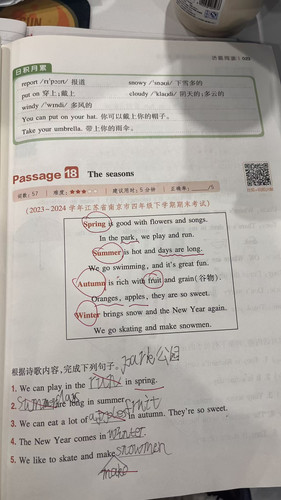 日积月累
report /rɪ'pɔːt/ 报道 snowy /'snəʊi/ 下雪多的
put on 穿上;戴上 cloudy /'klaʊdi/ 阴天的;多云的
windy /'wɪndi/ 多风的
You can put on your hat. 你可以戴上你的帽子。
Take your umbrella. 带上你的雨伞。
Passage 18 The seasons
词数:57 难度:★★★ 建议用时:5分钟 正确率:____/5
(2023–2024学年江苏省南京市四年级下学期期末考试)
Spring is good with flowers and songs.
In the park, we play and run.
Summer is hot and days are long.
We go swimming, and it's great fun.
Autumn is rich with fruit and grain(谷物).
Oranges, apples, they are so sweet.
Winter brings snow and the New Year again.
We go skating and make snowmen.
根据诗歌内容,完成下列句子。
park 公园
1. We can play in the in spring.
2. are long in summer.
3. We can eat a lot of fruit in autumn. They're so sweet.
4. The New Year comes in winter.
5. We like to skate and make snowmen
make